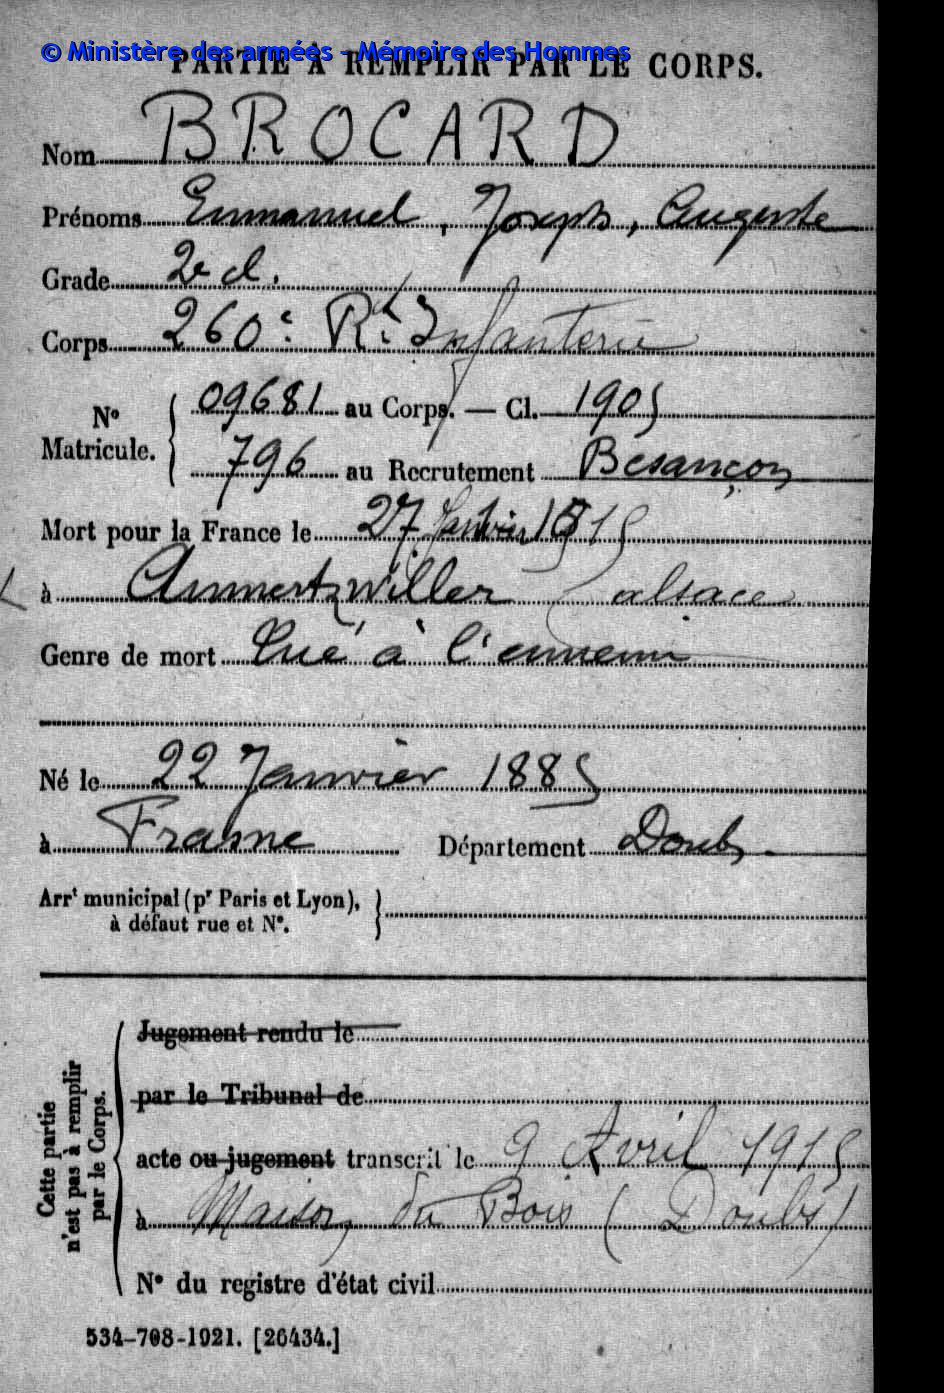 © Ministère des armées - Mémoire des Hommes
PARTIE À REMPLIR PAR LE CORPS.
Nom BROCARD
Prénoms Emmanuel, Joseph, Auguste
Grade 2e cl.
Corps 260e Rt. Infanterie
No Matricule. { 09681 au Corps. — Cl. 1905
796 au Recrutement Besançon
Mort pour la France le 27 Janvier 1915
à Ammertzwiller (alsace
Genre de mort Tué à l'ennemi
Né le 22 Janvier 1885
à Frasne Département Doubs.
Arrt municipal (pr Paris et Lyon),
à défaut rue et No. }
Cette partie
n'est pas à remplir
par le Corps.
Jugement rendu le
par le Tribunal de
acte ou jugement transcrit le 9 Avril 1915
à Maisons du Bois (Doubs)
No du registre d'état civil
534-708-1921. [26434.]